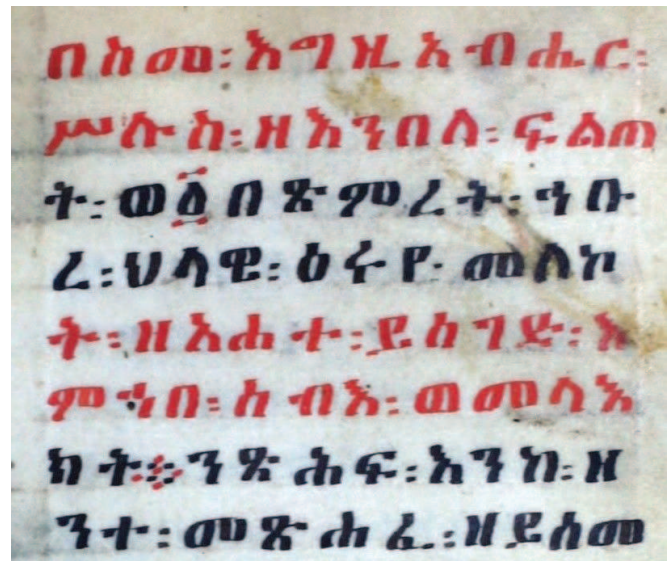 በስመ፡እግዚአብሔር፡
ሥሉስ፡ዘእንበለ፡ፍልጠ
ት፡ወ፩በጽምረት፡ኅቡ
ረ፡ህላዌ፡ዕሩየ፡መለኮ
ት፡ዘአሐተ፡ይሰገድ፡እ
ምኀበ፡ሰብእ፡ወመላእ
ክት፨ንጽሕፍ፡እንከ፡ዘ
ንተ፡መጽሐፈ፡ዘይሰመ